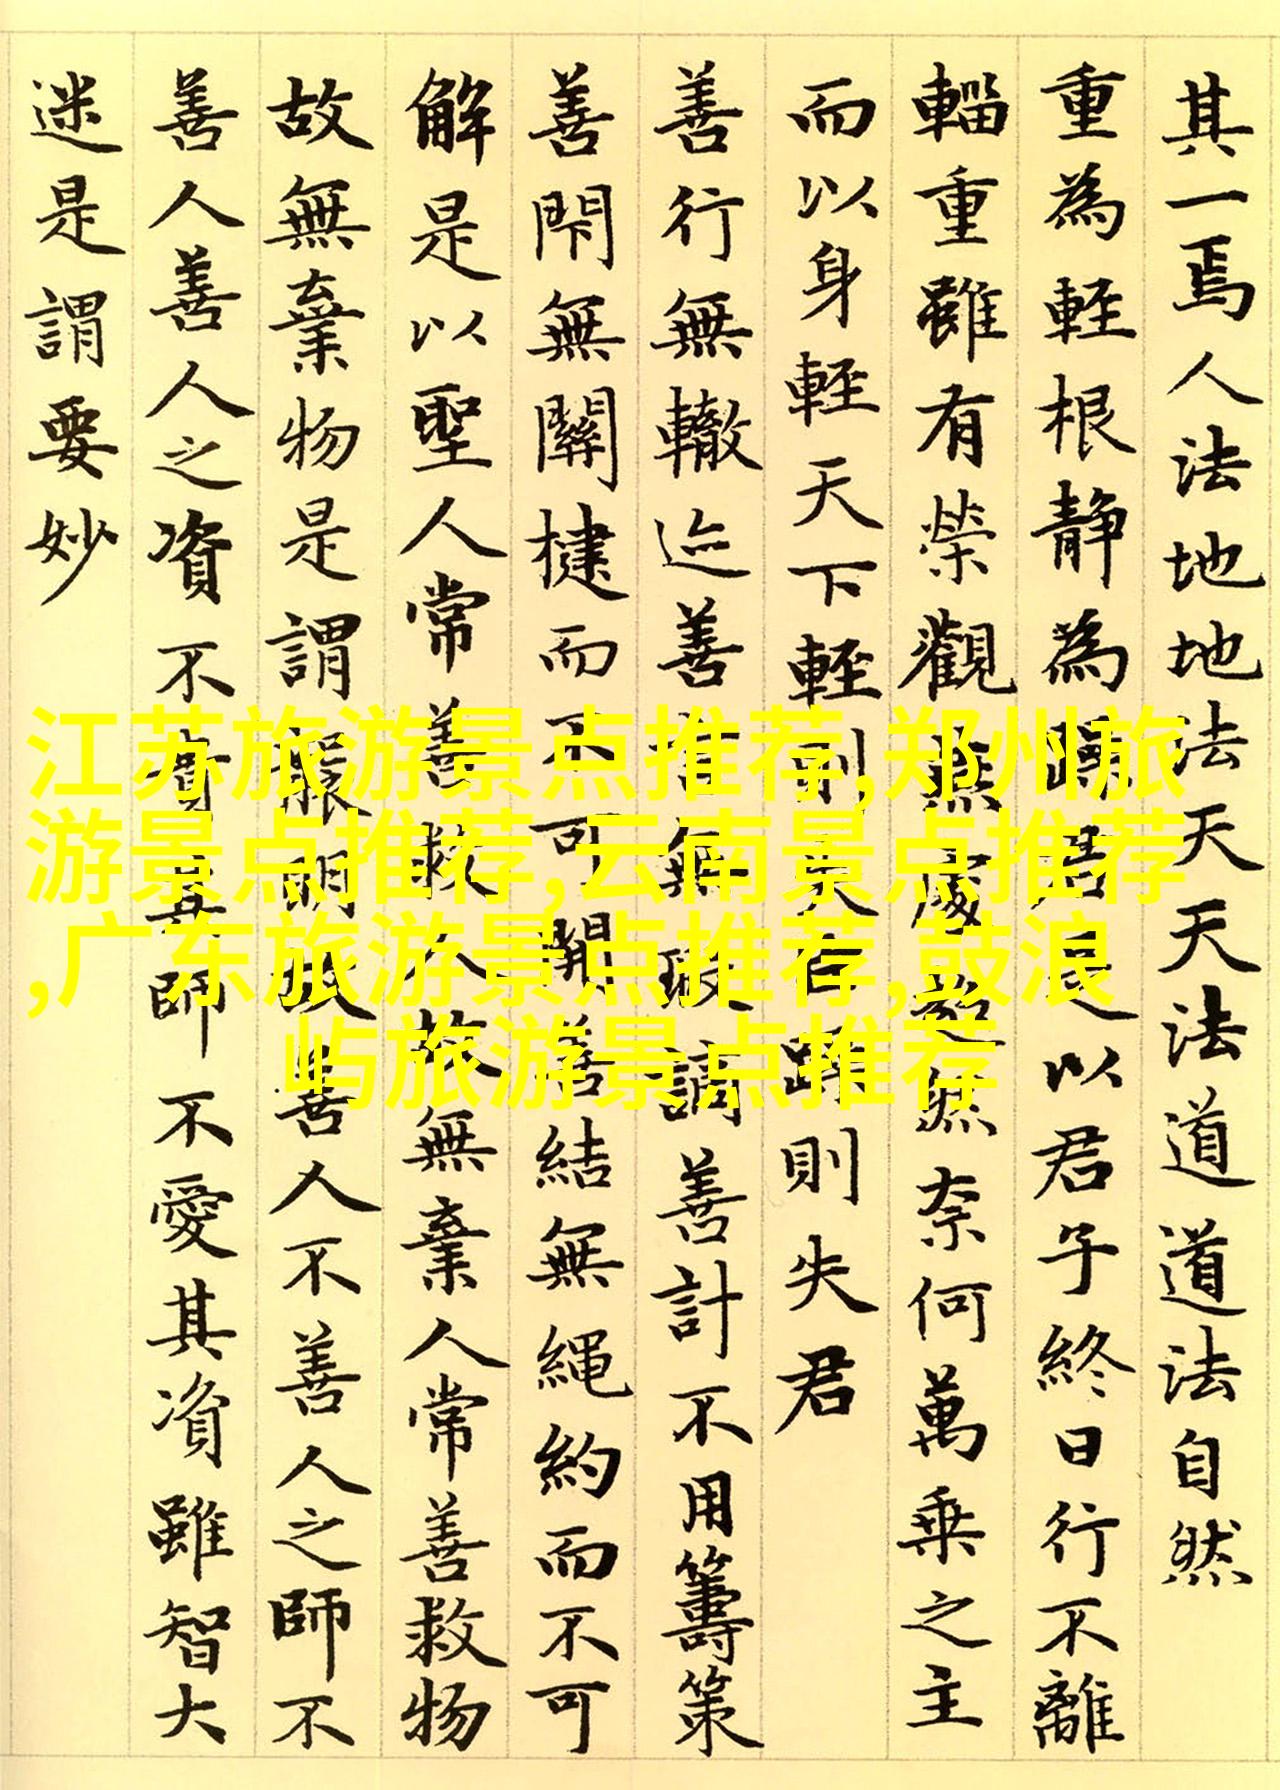 其一焉人法地地法天天法道道法自然
重為輕根靜為躁君是以君子終日行不離
輜重雖有榮觀燕處超然奈何萬乘之主
而以身輕天下輕則失臣躁則失君
善行無轍迹善言無瑕謫善計不用籌策
善閇無關楗而不可開善結無繩約而不可
解是以聖人常善救人故無棄人常善救物
故無棄物是謂襲明故善人不善人之師不
善人善人之資不貴其師不愛其資雖智大
迷是謂要妙
江苏旅游景点推荐,郑州旅
游景点推荐,云南景点推荐
,广东旅游景点推荐,鼓浪
屿旅游景点推荐